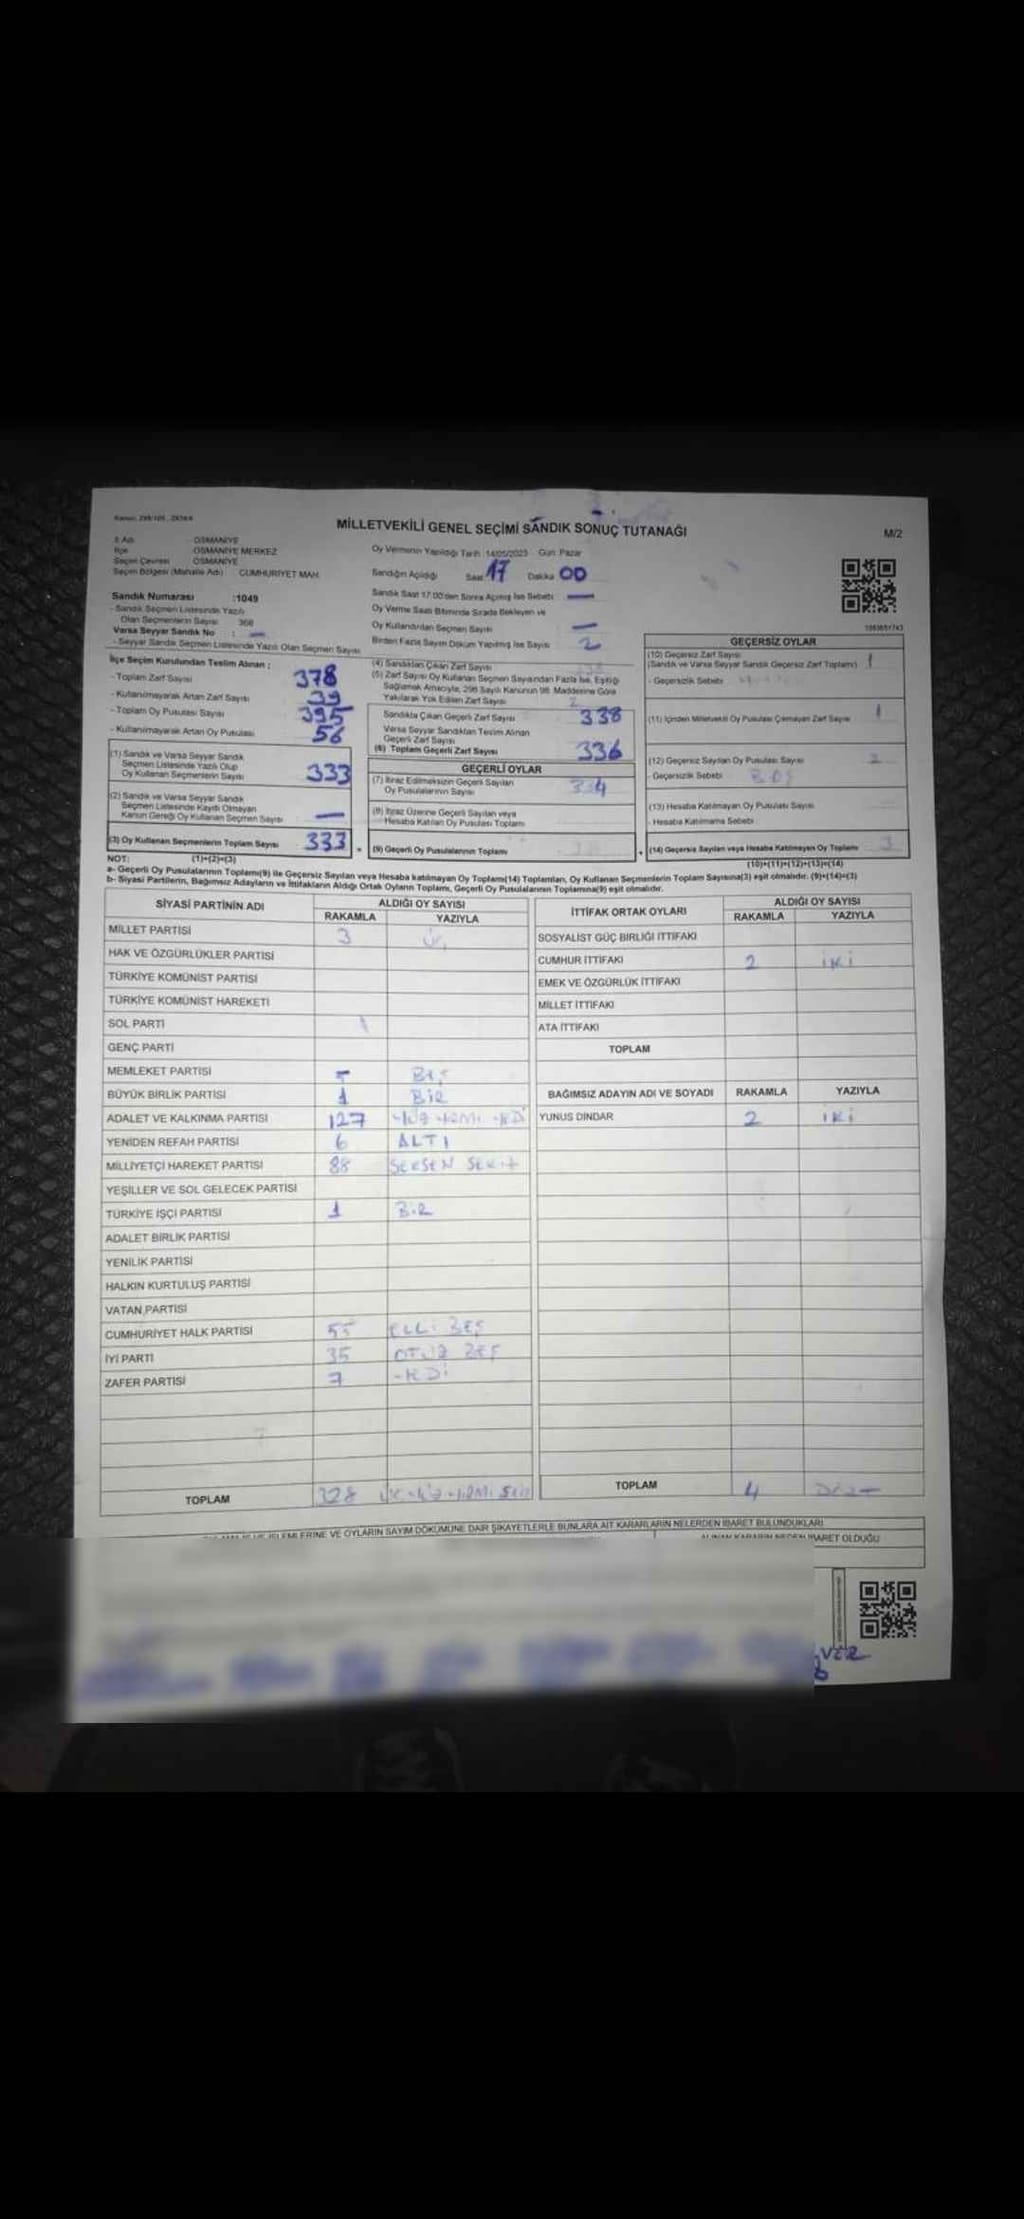 Kanun: 298/105, 2839/4
MİLLETVEKİLİ GENEL SEÇİMİ SANDIK SONUÇ TUTANAĞI
M/2
İl Adı : OSMANİYE
İlçe : OSMANİYE MERKEZ
Seçim Çevresi : OSMANİYE
Seçim Bölgesi (Mahalle Adı) : CUMHURİYET MAH.
Sandık Numarası :1049
- Sandık Seçmen Listesinde Yazılı
Olan Seçmenlerin Sayısı 368
Varsa Seyyar Sandık No : —
- Seyyar Sandık Seçmen Listesinde Yazılı Olan Seçmen Sayısı
İlçe Seçim Kurulundan Teslim Alınan ;
- Toplam Zarf Sayısı 378
- Kullanılmayarak Artan Zarf Sayısı 39
- Toplam Oy Pusulası Sayısı 395
- Kullanılmayarak Artan Oy Pusulası 56
(1) Sandık ve Varsa Seyyar Sandık
Seçmen Listesinde Yazılı Olup
Oy Kullanan Seçmenlerin Sayısı 333
(2) Sandık ve Varsa Seyyar Sandık
Seçmen Listesinde Kayıtlı Olmayan
Kanun Gereği Oy Kullanan Seçmen Sayısı —
(3) Oy Kullanan Seçmenlerin Toplam Sayısı 333
Oy Vermenin Yapıldığı Tarih :14/05/2023 Gün: Pazar
Sandığın Açıldığı Saat 17 Dakika 00
Sandık Saat 17:00'den Sonra Açılmış İse Sebebi —
Oy Verme Saati Bitiminde Sırada Bekleyen ve
Oy Kullandırılan Seçmen Sayısı —
Birden Fazla Sayım Döküm Yapılmış İse Sayısı 2
(4) Sandıktan Çıkan Zarf Sayısı
(5) Zarf Sayısı Oy Kullanan Seçmen Sayısından Fazla İse, Eşitliği
Sağlamak Amacıyla, 298 Sayılı Kanunun 98. Maddesine Göre
Yakılarak Yok Edilen Zarf Sayısı 2
Sandıkta Çıkan Geçerli Zarf Sayısı 338
Varsa Seyyar Sandıktan Teslim Alınan
Geçerli Zarf Sayısı
(6) Toplam Geçerli Zarf Sayısı 336
GEÇERLİ OYLAR
(7) İtiraz Edilmeksizin Geçerli Sayılan
Oy Pusulalarının Sayısı 334
(8) İtiraz Üzerine Geçerli Sayılan veya
Hesaba Katılan Oy Pusulası Toplamı
(9) Geçerli Oy Pusulalarının Toplamı
GEÇERSİZ OYLAR
(10) Geçersiz Zarf Sayısı
(Sandık ve Varsa Seyyar Sandık Geçersiz Zarf Toplamı) 1
- Geçersizlik Sebebi
(11) İçinden Milletvekili Oy Pusulası Çıkmayan Zarf Sayısı 1
(12) Geçersiz Sayılan Oy Pusulası Sayısı 2
- Geçersizlik Sebebi BOŞ
(13) Hesaba Katılmayan Oy Pusulası Sayısı
- Hesaba Katılmama Sebebi
(14) Geçersiz Sayılan veya Hesaba Katılmayan Oy Toplamı 3
NOT: (1)+(2)=(3)
(10)+(11)+(12)+(13)=(14)
a- Geçerli Oy Pusulalarının Toplamı(9) ile Geçersiz Sayılan veya Hesaba katılmayan Oy Toplamı(14) Toplamları, Oy Kullanan Seçmenlerin Toplam Sayısına(3) eşit olmalıdır. (9)+(14)=(3)
b- Siyasi Partilerin, Bağımsız Adayların ve İttifakların Aldığı Ortak Oyların Toplamı, Geçerli Oy Pusulalarının Toplamına(9) eşit olmalıdır.
SİYASİ PARTİNİN ADI ALDIĞI OY SAYISI
RAKAMLA YAZIYLA
MİLLET PARTİSİ 3 ÜÇ
HAK VE ÖZGÜRLÜKLER PARTİSİ
TÜRKİYE KOMÜNİST PARTİSİ
TÜRKİYE KOMÜNİST HAREKETİ
SOL PARTİ
GENÇ PARTİ
MEMLEKET PARTİSİ 5 BEŞ
BÜYÜK BİRLİK PARTİSİ 1 BİR
ADALET VE KALKINMA PARTİSİ 127 YÜZ YİRMİ YEDİ
YENİDEN REFAH PARTİSİ 6 ALTI
MİLLİYETÇİ HAREKET PARTİSİ 88 SEKSEN SEKİZ
YEŞİLLER VE SOL GELECEK PARTİSİ
TÜRKİYE İŞÇİ PARTİSİ 1 BİR
ADALET BİRLİK PARTİSİ
YENİLİK PARTİSİ
HALKIN KURTULUŞ PARTİSİ
VATAN PARTİSİ
CUMHURİYET HALK PARTİSİ 55 ELLİ BEŞ
İYİ PARTİ 35 OTUZ BEŞ
ZAFER PARTİSİ 7 YEDİ
TOPLAM 328
İTTİFAK ORTAK OYLARI ALDIĞI OY SAYISI
RAKAMLA YAZIYLA
SOSYALİST GÜÇ BİRLİĞİ İTTİFAKI
CUMHUR İTTİFAKI 2 İKİ
EMEK VE ÖZGÜRLÜK İTTİFAKI
MİLLET İTTİFAKI
ATA İTTİFAKI
TOPLAM
BAĞIMSIZ ADAYIN ADI VE SOYADI RAKAMLA YAZIYLA
YUNUS DİNDAR 2 İKİ
TOPLAM 4 DÖRT
İŞLEMLERİNE VE OYLARIN SAYIM DÖKÜMÜNE DAİR ŞİKAYETLERLE BUNLARA AİT KARARLARIN NELERDEN İBARET BULUNDUKLARI
ALINAN KARARIN NEDEN İBARET OLDUĞU